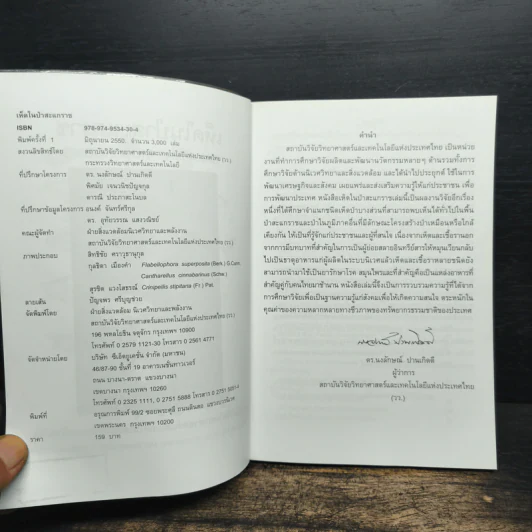 เห็ดในป่าสะแกราช
ISBN 978-974-9534-30-4
พิมพ์ครั้งที่ 1 มิถุนายน 2550 จำนวน 3,000 เล่ม
สงวนลิขสิทธิ์โดย สถาบันวิจัยวิทยาศาสตร์และเทคโนโลยีแห่งประเทศไทย (วว.)
กระทรวงวิทยาศาสตร์และเทคโนโลยี
ที่ปรึกษาโครงการ ดร. นงลักษณ์ ปานเกิดดี
พิศมัย เจนวนิชปัญจกุล
ดารณี ประภาสะโนบล
ที่ปรึกษาข้อมูลโครงการ อนงค์ จันทร์ศรีกุล
ดร. อุทัยวรรณ แสงวณิชย์
คณะผู้จัดทำ ฝ่ายสิ่งแวดล้อมนิเวศวิทยาและพลังงาน
สถาบันวิจัยวิทยาศาสตร์และเทคโนโลยีแห่งประเทศไทย (วว.)
ภาพประกอบ สิทธิชัย
กุลธิดา เมืองคำ Filoboletus
Cantharellus cinnabarinus (Schw.)
สุรชิต แวงโสธรณ์ Crinipellis stipitaria (Fr.) Pat.
สายเส้น ปัญจพร ศรีบุญช่วย
จัดพิมพ์โดย ฝ่ายสิ่งแวดล้อม นิเวศวิทยาและพลังงาน
สถาบันวิจัยวิทยาศาสตร์และเทคโนโลยีแห่งประเทศไทย (วว.)
196 พหลโยธิน จตุจักร กรุงเทพฯ 10900
โทรศัพท์ 0 2579 1121-30 โทรสาร 0 2561 4771
จัดจำหน่ายโดย บริษัท ซีเอ็ดยูเคชั่น จำกัด (มหาชน)
46/87-90 ชั้นที่ 19 อาคารเนชั่นทาวเวอร์
ถนน บางนา-ตราด แขวงบางนา
เขตบางนา กรุงเทพฯ 10260
โทรศัพท์ 0 2325 1111, 0 2751 5888 โทรสาร 0 2751 5051-6
พิมพ์ที่ อรุณการพิมพ์ 99/2 ซอยพระศุลี ถนนดินสอ แขวงบวรนิเวศ
เขตพระนคร กรุงเทพฯ 10200
ราคา 159 บาท
คำนำ
สถาบันวิจัยวิทยาศาสตร์และเทคโนโลยีแห่งประเทศไทย เป็นหน่วย
งานที่ทำการศึกษาวิจัยผลิตและพัฒนานวัตกรรมหลายๆ ด้านรวมทั้งการ
ศึกษาวิจัยด้านนิเวศวิทยาและสิ่งแวดล้อม และได้นำไปประยุกต์ ใช้ในการ
พัฒนาเศรษฐกิจและสังคม เผยแพร่และส่งเสริมความรู้ให้แก่ประชาชน เพื่อ
การพัฒนาประเทศ หนังสือเห็ดในป่าสะแกราชเล่มนี้เป็นผลงานวิจัยอีกเรื่อง
หนึ่งที่ได้ศึกษาจำแนกชนิดเห็ดป่าบางส่วนที่สามารถพบเห็นได้ทั่วไปในพื้น
ป่าสะแกราชและป่าในภูมิภาคอื่นที่มีลักษณะโครงสร้างป่าเหมือนหรือใกล้
เคียงกัน ให้เป็นที่รู้จักแก่ประชาชนและผู้ที่สนใจ เนื่องจากเห็ดและเชื้อรานอก
จากการมีบทบาทที่สำคัญในการเป็นผู้ย่อยสลายอินทรีย์สารให้หมุนเวียนกลับ
ไปเป็นธาตุอาหารแก่ผู้ผลิตในระบบนิเวศแล้วเห็ดและเชื้อราหลายชนิดยัง
สามารถนำมาใช้เป็นยารักษาโรค สมุนไพรและที่สำคัญคือเป็นแหล่งอาหารที่
สำคัญคู่กับคนไทยมาช้านาน หนังสือเล่มนี้จึงเป็นการรวบรวมความรู้ที่ได้จาก
การศึกษาวิจัยเพื่อเป็นฐานความรู้แก่สังคมเพื่อให้เกิดความสนใจ ตระหนักใน
คุณค่าของความหลากหลายทางชีวภาพของทรัพยากรธรรมชาติของประเทศ
ดร.นงลักษณ์ ปานเกิดดี
ผู้ว่าการ
สถาบันวิจัยวิทยาศาสตร์และเทคโนโลยีแห่งประเทศไทย
(วว.)